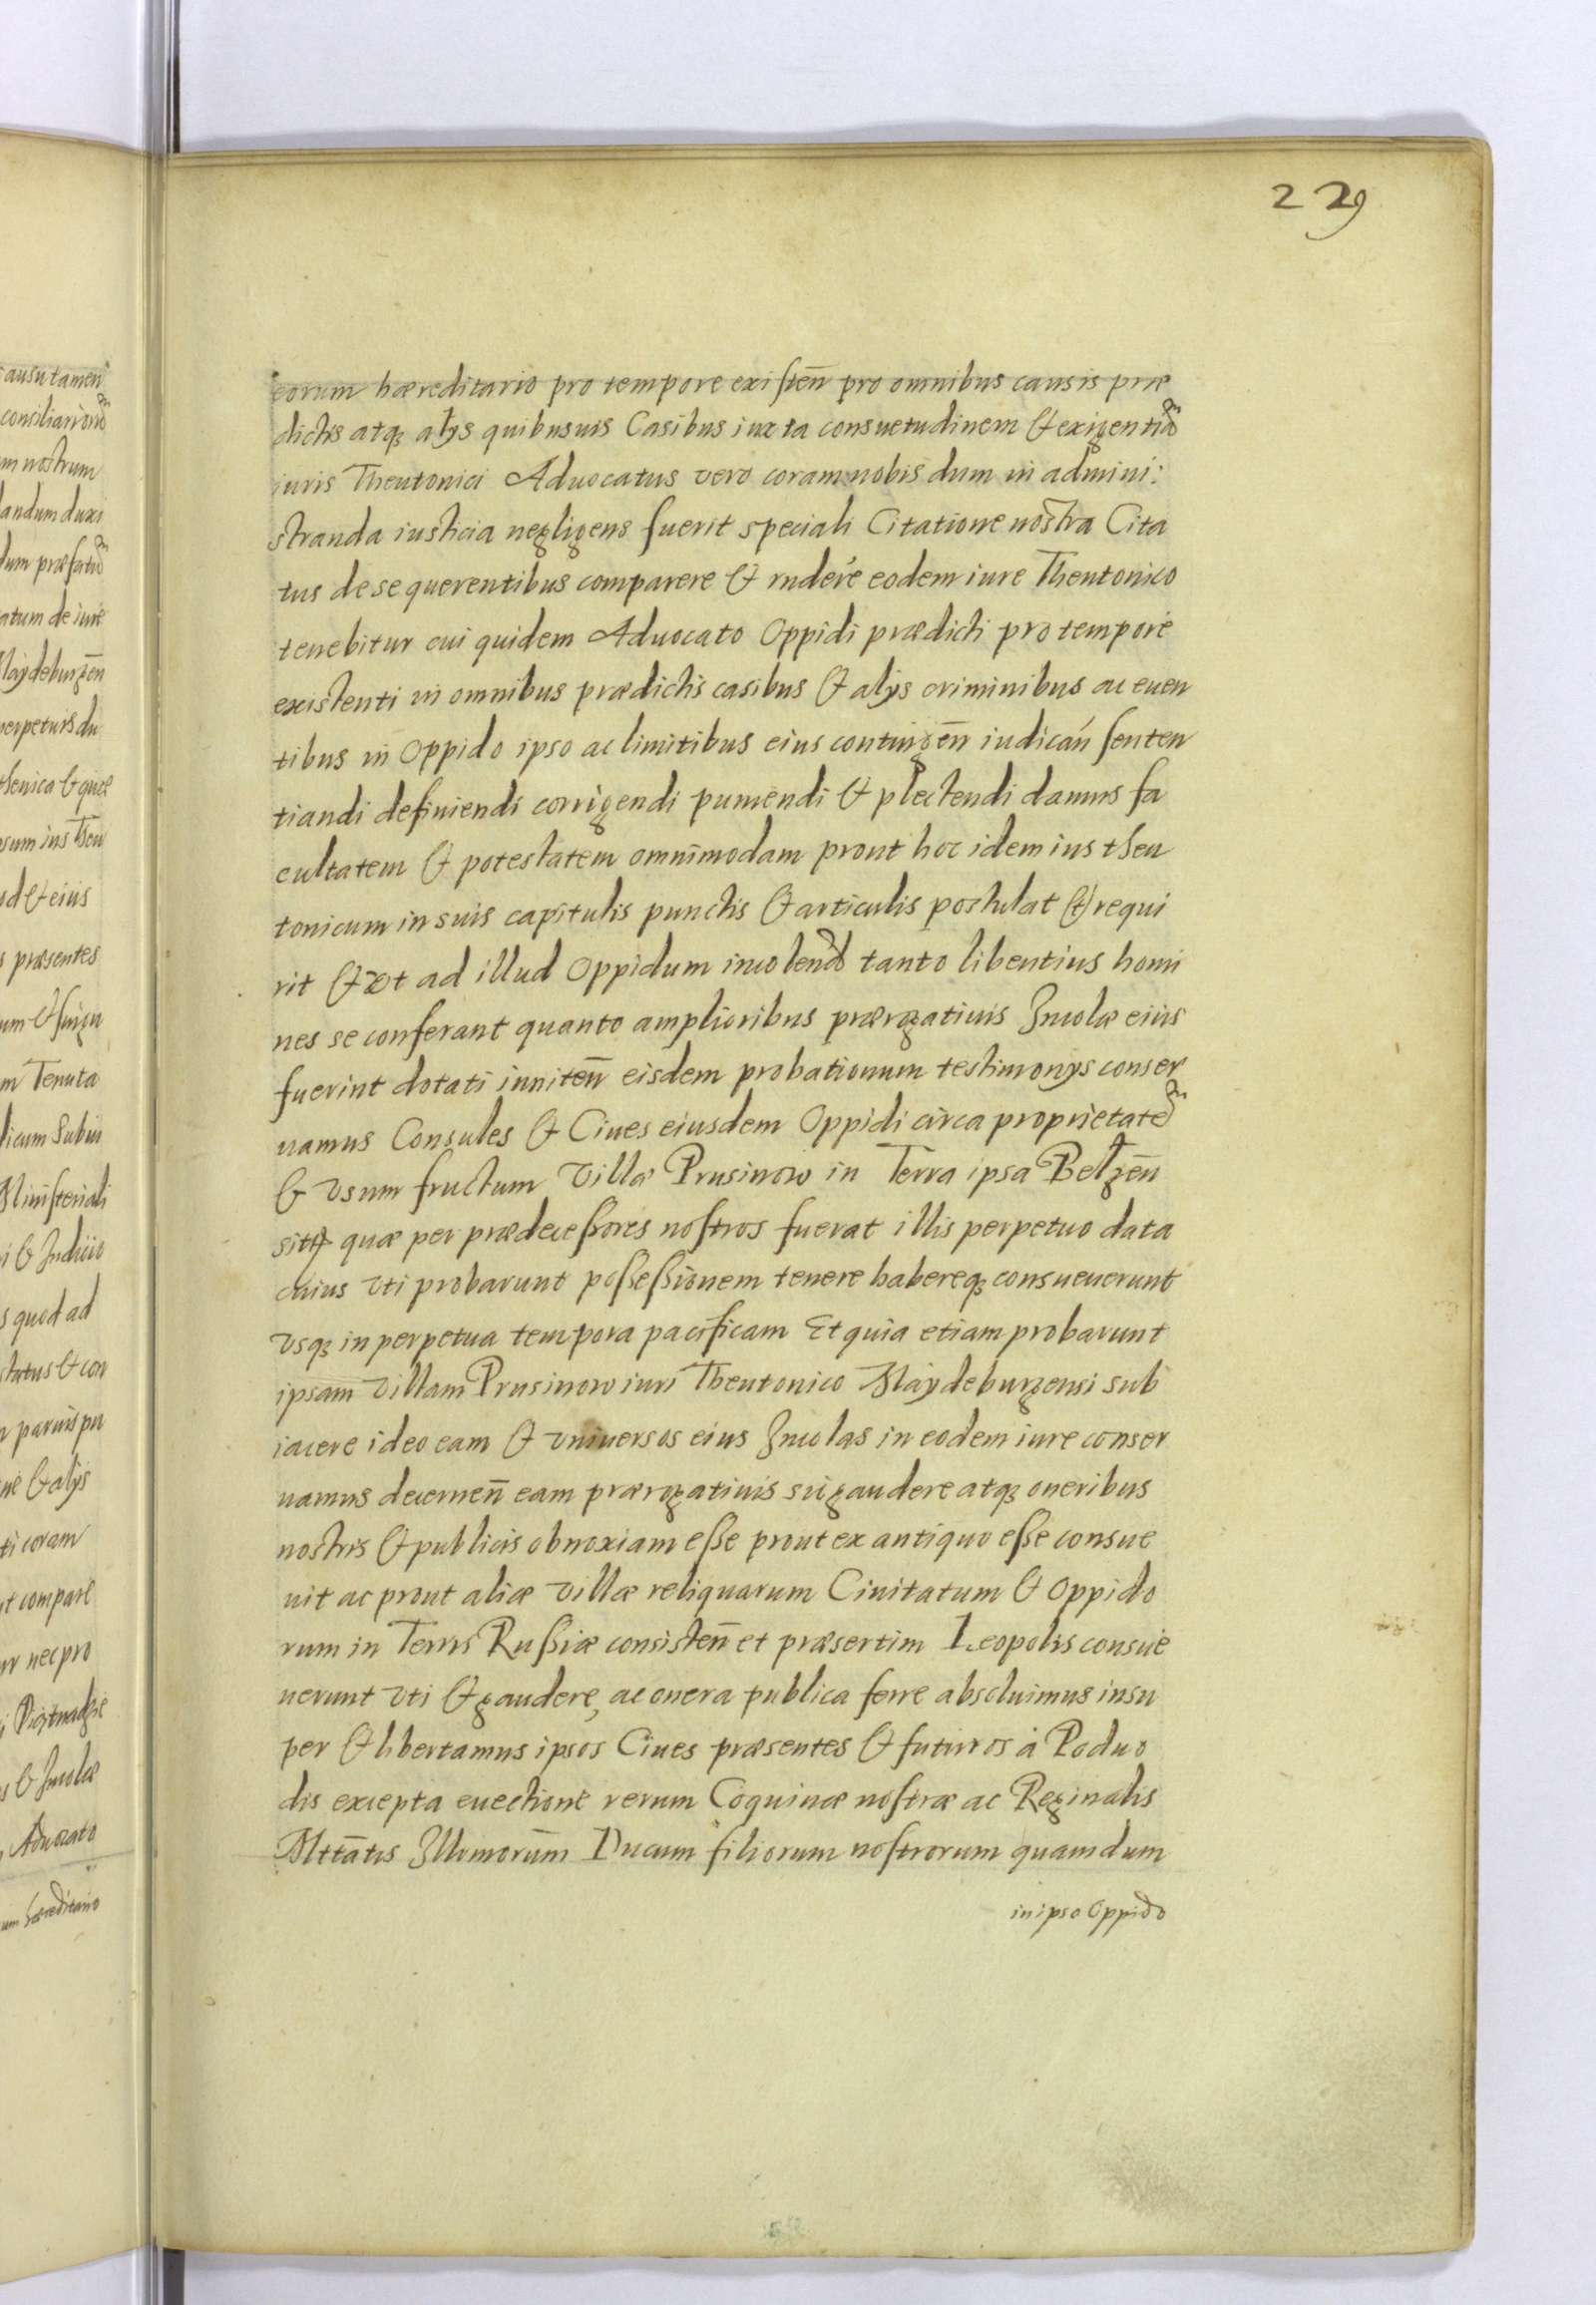 229
eorum hæreditario pro tempore existen̄ pro omnibus causis præ
dictis atq3 alÿs quibusuis Casibus iuxta consuetudinem & exigentiā
iuris Theutonici Aduocatus vero coram nobis dum in admini:
stranda iusticia negligens fuerit speciali Citatione nostra Cita
tus de se querentibus comparere & rndere eodem iure Theutonico
tenebitur cui quidem Aduocato Oppidi prædicti pro tempore
existenti in omnibus prædictis casibus & alÿs criminibus ac euen
tibus in Oppido ipso ac limitibus eius contingen̄ iudican̄ senten
tiandi definiendi corrigendi puniendi & plectendi damus fa
cultatem & potestatem omnimodam prout hoc idem ius theu
tonicum in suis capitulis punctis & articulis postulat & requi
rit & vt ad illud Oppidum incolend̄ tanto libentius homi
nes se conferant quanto amplioribus prærogatiuis Incolæ eius
fuerint dotati inniten̄ eisdem probationum testimonÿs conser
uamus Consules & Ciues eiusdem Oppidi circa proprietatē
& vsum fructum Villæ Prusinow in Terra ipsa Belzen̄
sitæ quæ per prædecessores nostros fuerat illis perpetuo data
cuius vti probarunt possessionem tenere habereq3 consueuerunt
vsq3 in perpetua tempora pacificam Et quia etiam probarunt
ipsam Villam Prusinow iuri Theutonico Maÿdeburgensi sub
iacere ideo eam & vniuersos eius Incolas in eodem iure conser
uamus decernen̄ eam prærogatiuis sui gaudere atq3 oneribus
nostris & publicis obnoxiam esse prout ex antiquo esse consue
uit ac prout aliæ villæ reliquarum Ciuitatum & Oppido
rum in Terris Russiæ consisten̄ et præsertim Leopolis consue
uerunt vti & gaudere, ac onera publica ferre absoluimus insu
per & libertamus ipsos Ciues præsentes & futuros à Poduo
dis excepta euectione rerum Coquinæ nostræ ac Reginalis
Mttātis Illmorum̄ Ducum filiorum nostrorum quamdum
in ipso Oppido